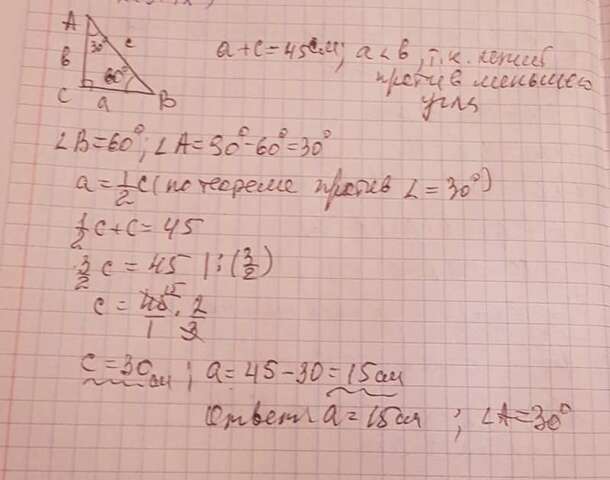 A
30°
в c
60°
C a B
a + c = 45 см; a < в, т.к. лежит
против меньшего
угла
∠B = 60°; ∠A = 90° - 60° = 30°
a = 1/2 c (по теореме против ∠ = 30°)
1/2 c + c = 45
3/2 c = 45 | : (3/2)
c = 45/1 15 · 2/3
c = 30 см; a = 45 - 30 = 15 см
Ответ a = 15 см; ∠A = 30°